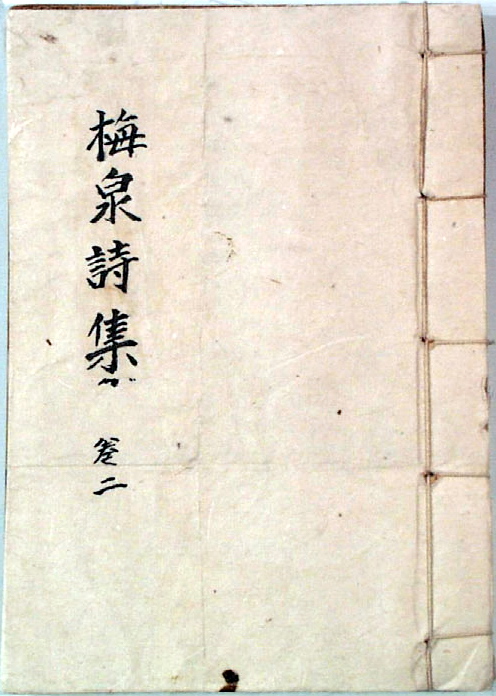 梅泉詩集 卷二